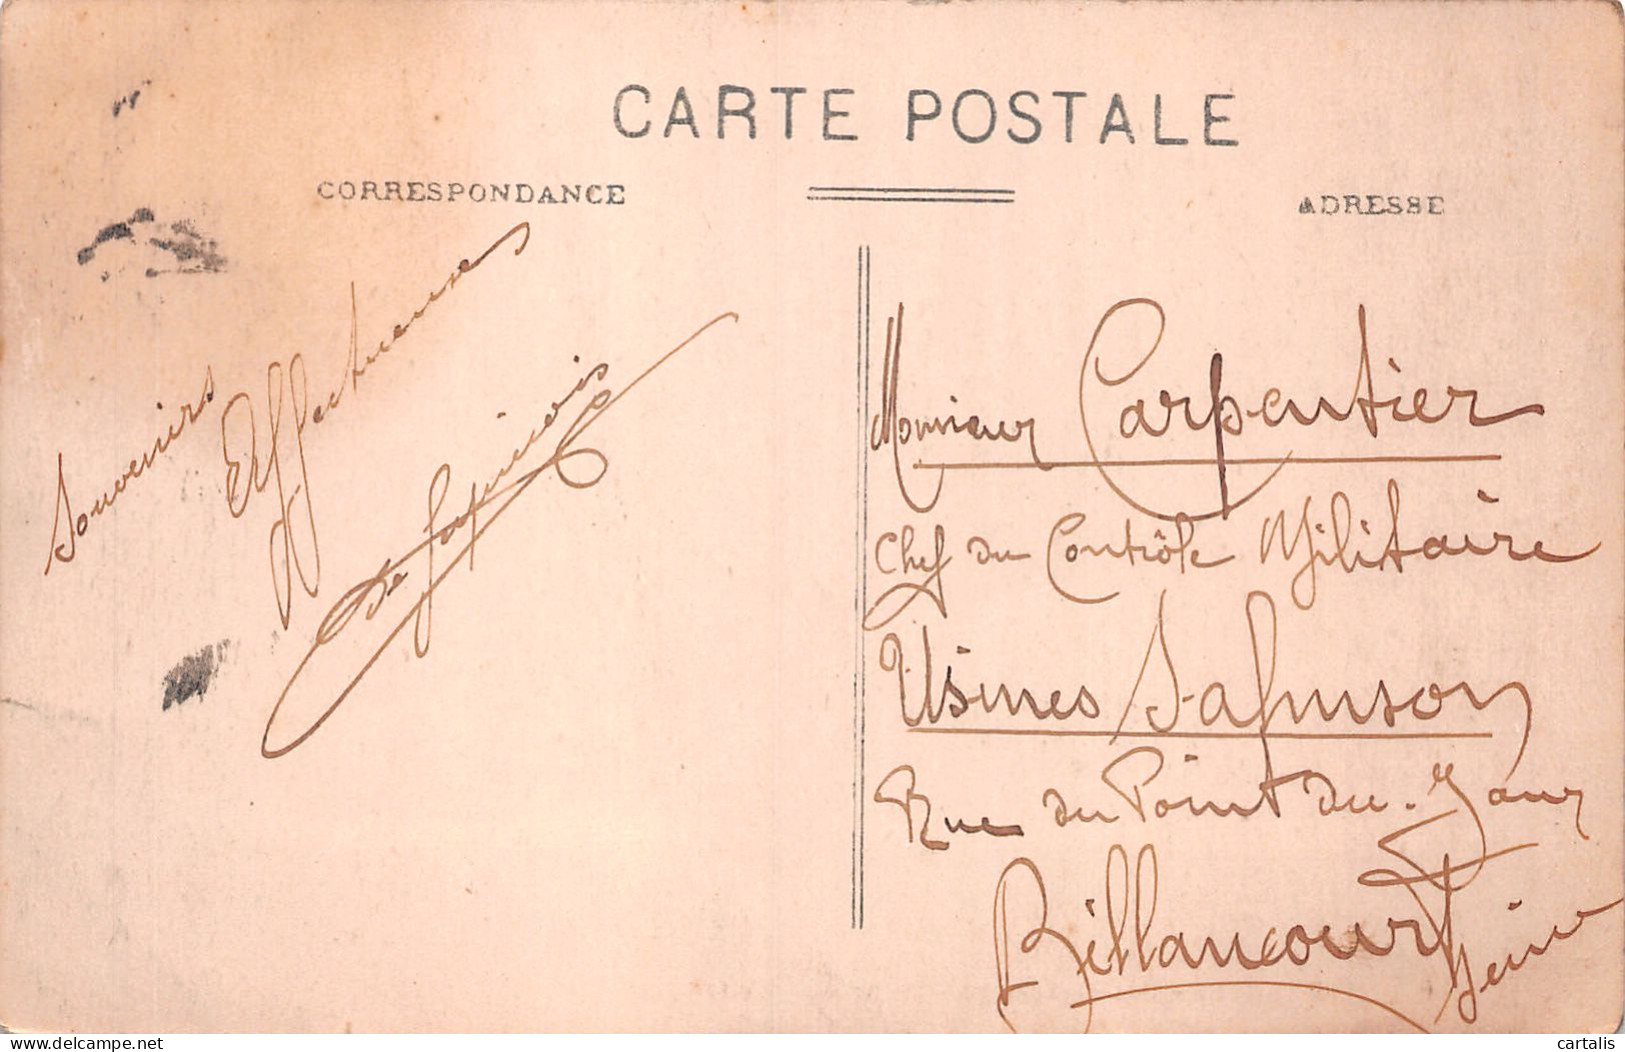 CARTE POSTALE
CORRESPONDANCE
ADRESSE
Souvenirs
Affectueux
Monsieur Carpentier
Chef du Contrôle Militaire
Usines Salmson
Rue du Point du Jour
Billancourt
Seine
cartalis
delcampe.net